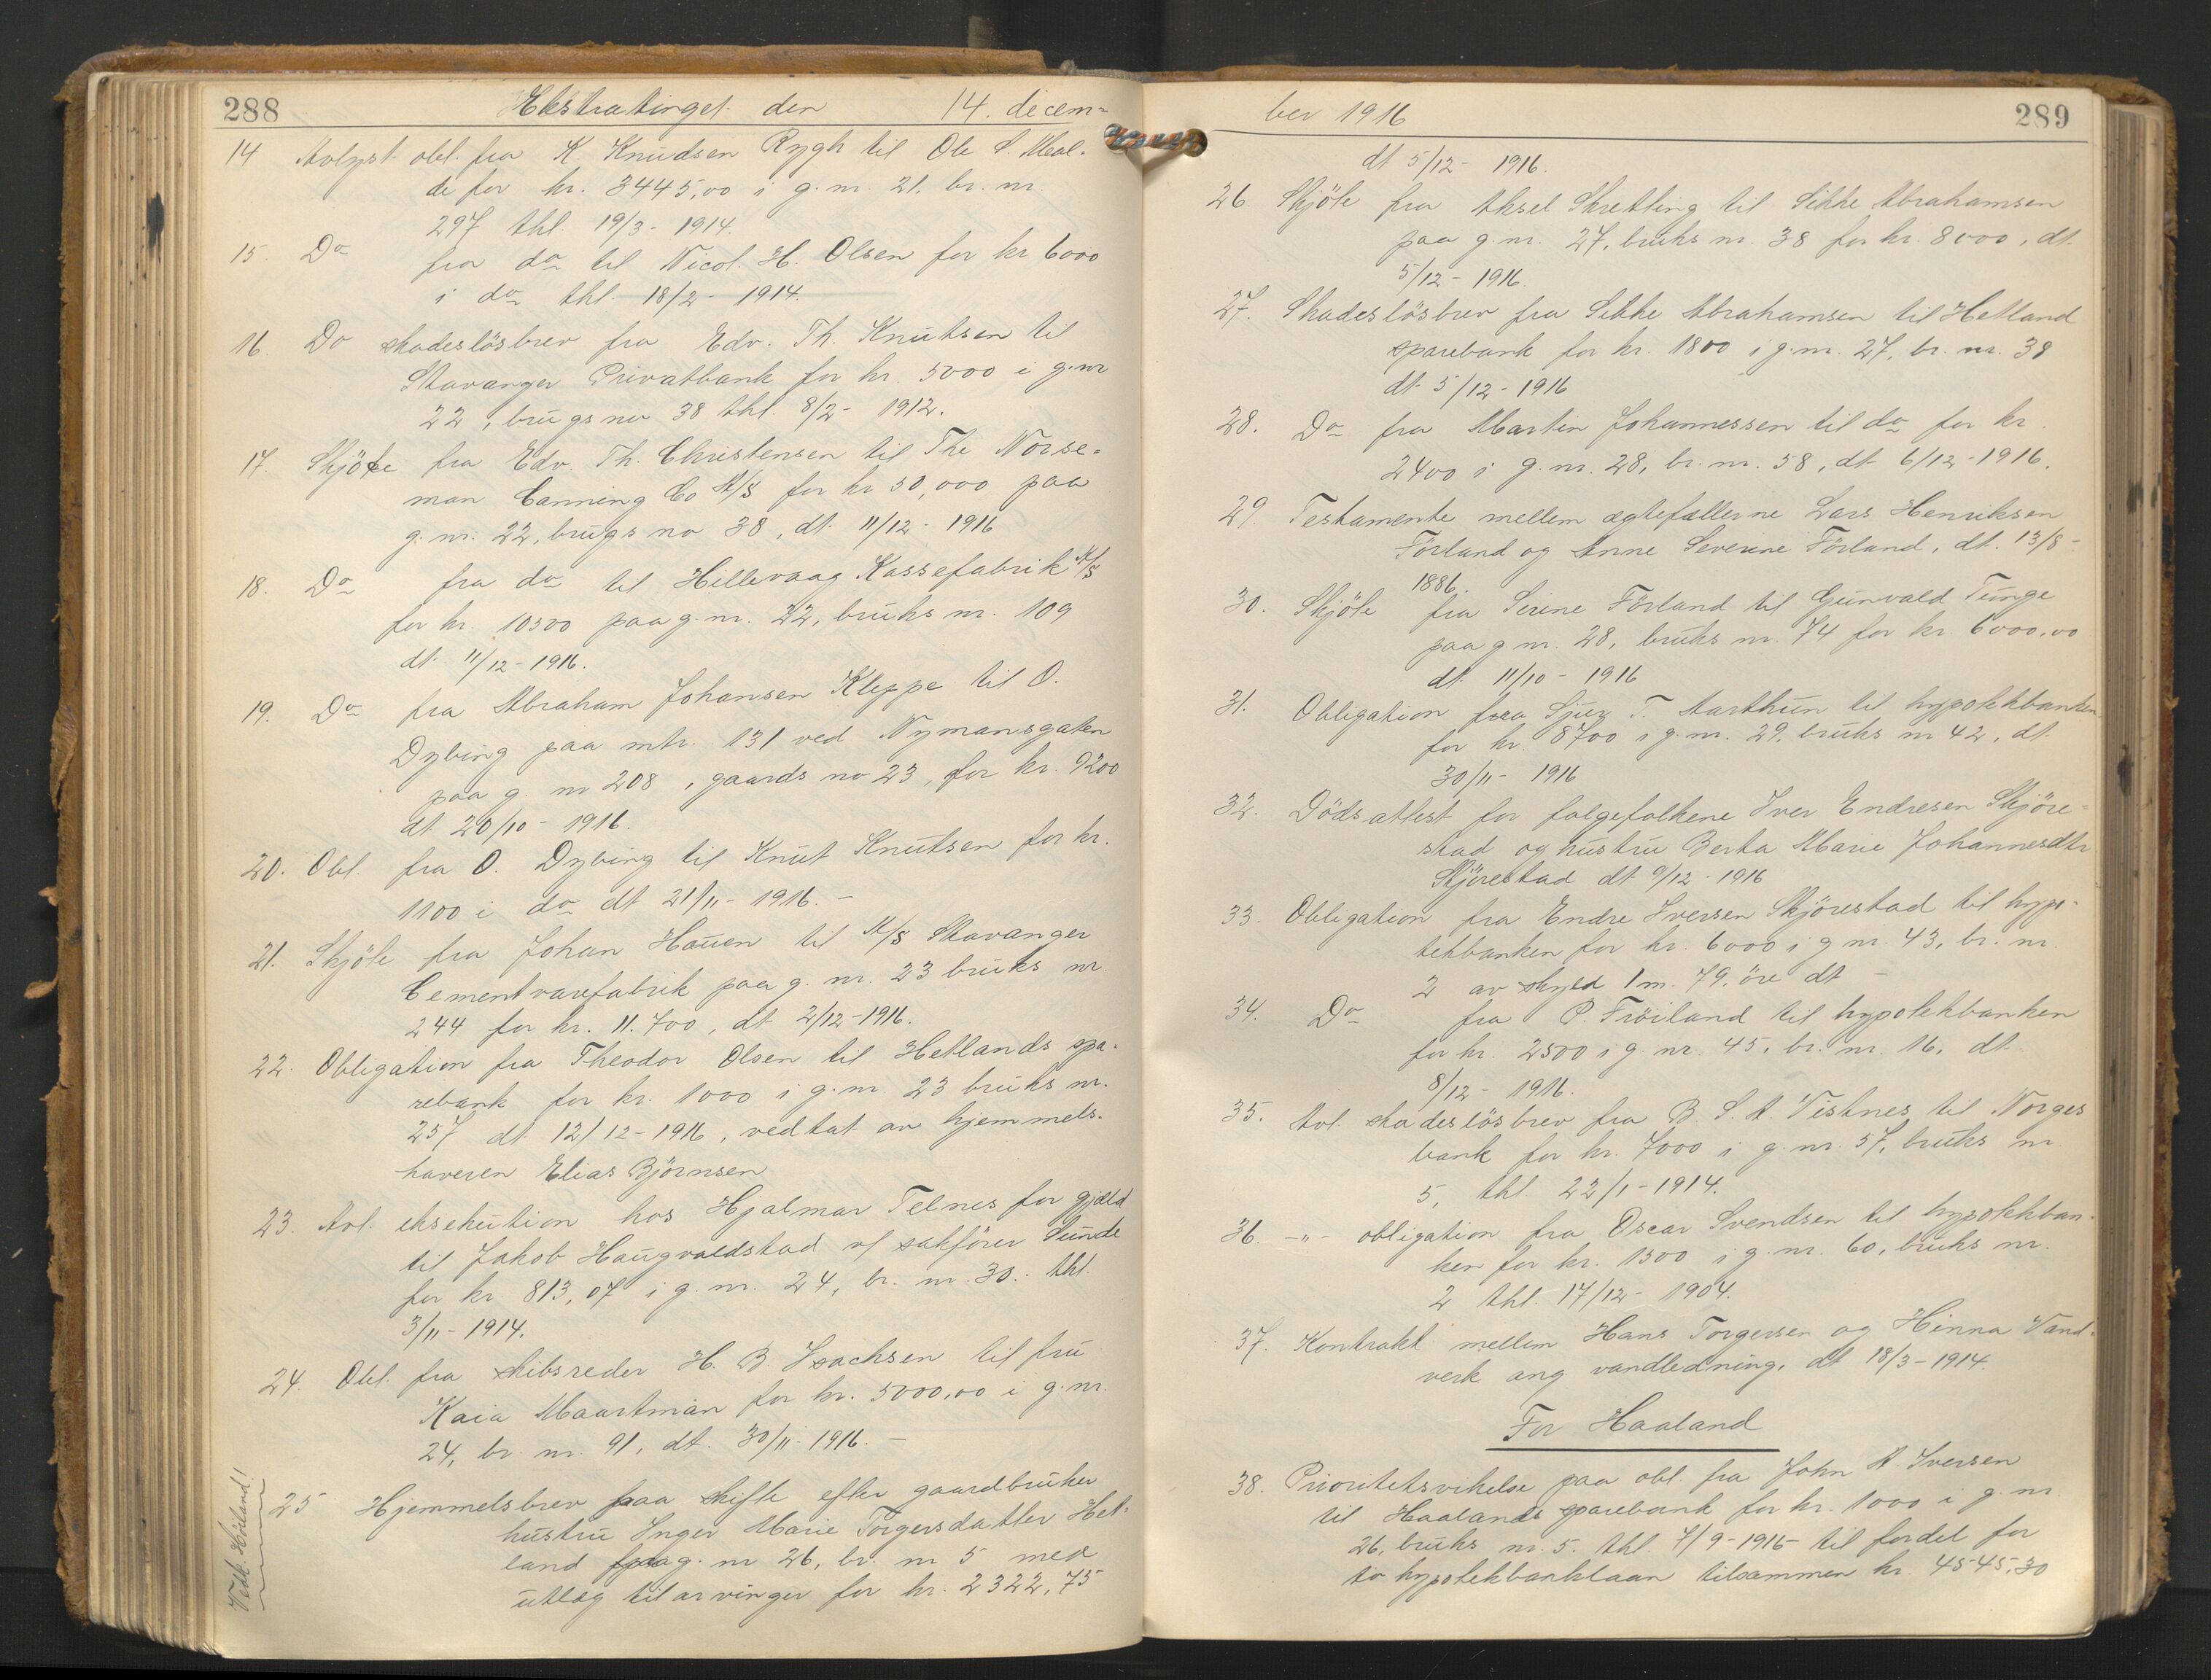 288 Ekstratinget den 14. decem=
14 Avlyst obl. fra K. Knudsen Rygh til Ole S. Meal-
de for kr. 3445,00 i g. nr. 21. br. nr.
297 thl. 19/3- 1914.
15. Do fra do til Nicol. H. Olsen for kr 6000
i do thl 18/2- 1914.
16. Do skadeslösbrev fra Edv. Th. Knutsen til
Stavanger Privatbank for kr. 5000 i g. nr
22, brugs no 38 thl. 8/2- 1912.
17. Skjöte fra Edv. Th. Christensen til The Norse=
man Canning Co A/S for kr 50,000 paa
g. nr. 22, brugs no 38, dt. 11/12- 1916
18. Do fra do til Hillevaag Kassefabrik A/S
for kr. 10500 paa g. nr. 22, bruks nr. 109
dt 11/12- 1916.
19. Do fra Abraham Johansen Kleppe til O.
Dybing paa mtr. 131 ved Nymansgaten
paa g. nr 208, gaards no 23, for kr. 9200
dt 20/10- 1916.
20. Obl. fra O. Dybing til Knut Knutsen for kr.
1100 i do dt 21/11- 1916. -
21. Skjöte fra Johan Hauen til A/S Stavanger
Cementvarefabrik paa g. nr. 23 bruks nr.
244 for kr. 11.700, dt 2/12-1916.
22. Obligation fra Theodor Olsen til Hetlands spa-
rebank for kr. 1000 i g. nr 23 bruks nr.
257 dt 12/12-1916, vedtat av hjemmels-
haveren Elias Björnsen
23. Avl. eksekution hos Hjalmar Telnes for gjæld
til Jakob Haugvaldstad v/ sakförer Sunde
for kr. 813,07 i g. nr. 24, br. nr. 30. thl.
3/11- 1914.
24 Obl. fra skibsreder H. B. Isachsen til fru
Kaia Maartman for kr. 5000,00 i g. nr.
24, br. nr. 91, dt. 30/11- 1916. -
25 Hjemmelsbrev paa skifte efter gaardbruker
hustru Inger Marie Torgersdatter Het-
land paa g. nr 26, br. nr 5 med
utlæg til arvinger for kr. 2322,75
Vedk. Höiland!
ber 1916 289
dt 5/12- 1916.
26. Skjöte fra Aksel Skretting til Sikke Abrahamsen
paa g. nr. 27, bruks nr. 38 for kr. 8000, dt.
5/12- 1916.
27. Skadeslösbrev fra Sikke Abrahamsen til Hetland
sparebank for kr. 1800 i g. nr. 27, br. nr. 38
dt 5/12- 1916
28. Do fra Martin Johannessen til do for kr.
2400 i g. nr. 28, br. nr. 58, dt 6/12-1916.
29. Testamente mellem ægtefællerne Lars Henriksen
Förland og Anne Severine Förland, dt. 13/8-
1886.
30. Skjöte fra Serine Förland til Gunvald Tunge
paa g nr. 28, bruks nr. 74 for kr. 6000,00
dt. 11/10- 1916
31. Obligation fra Sjur T. Aarthun til hypotekbanken
for kr. 8700 i g. nr. 29, bruks nr 42, dt.
30/11- 1916
32. Dödsattest for folgefolkene Iver Endresen Skjöre=
stad og hustru Berta Marie Johannesdtr
Skjörestad dt 9/12- 1916
33. Obligation fra Endre Iversen Skjörestad til hypo-
tekbanken for kr. 6000 i g nr. 43, br. nr.
2 av skyld 1 m. 79. öre dt -
34. Do fra P. Fröiland til hypotekbanken
for kr. 2500 i g. nr. 45. br. nr. 16. dt.
8/12- 1916.
35. Avl. skadeslösbrev fra B. S. A. Vistnes til Norges
bank for kr. 7000 i g. nr. 57, bruks nr.
5, thl 22/1-1914.
36. -"- obligation fra Oscar Svendsen til hypotekban-
ken for kr. 1500 i g. nr. 60, bruks nr.
2 thl. 17/12- 1904.
37. Kontrakt mellem Hans Torgersen og Hinna Vand-
verk ang vandledning. dt 18/3-1914.
For Haaland
38. Prioritetsvikelse paa obl. fra John A. Iversen
til Haalands sparebank for kr. 1000 i g. nr
26, bruks nr. 5. thl. 7/9-1916- til fordel for
to hypotekbanklaan tilsammen kr. 4545,30